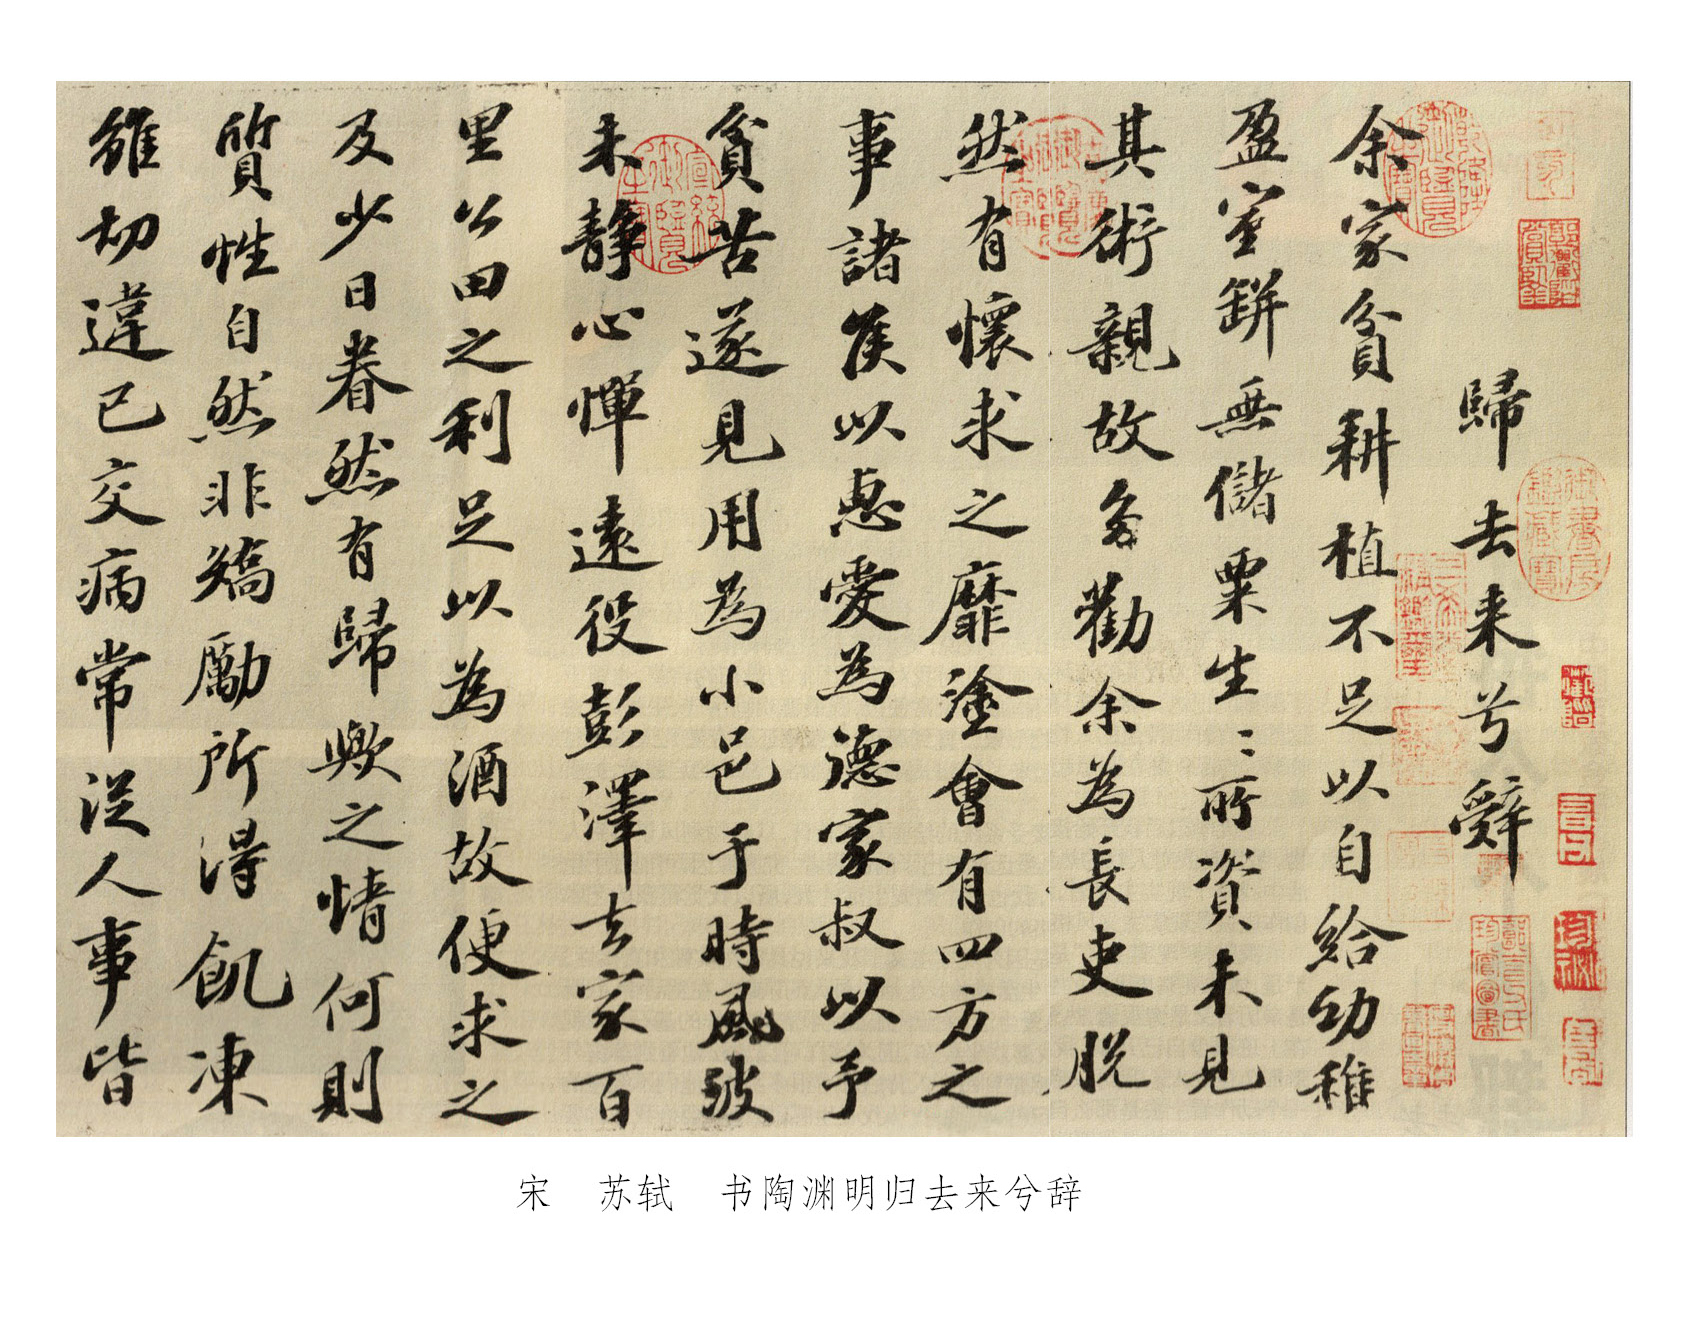 歸去来兮辭
余家貧耕植不足以自給幼稚
盈室缾無儲粟生〻所資未見
其術親故多勸余為長吏脱
然有懷求之靡塗會有四方之
事諸侯以惠愛為德家叔以予
貧苦遂見用為小邑于時風波
未静心憚遠役彭澤去家百
里公田之利足以為酒故便求之
及少日眷然有歸歟之情何則
質性自然非矯勵所得飢凍
雖切違已交病常從人事皆
乾隆御覽之寶
宣統御覽之寶
御書房鑑藏寶
三希堂精鑑璽
宋 苏轼 书陶渊明归去来兮辞